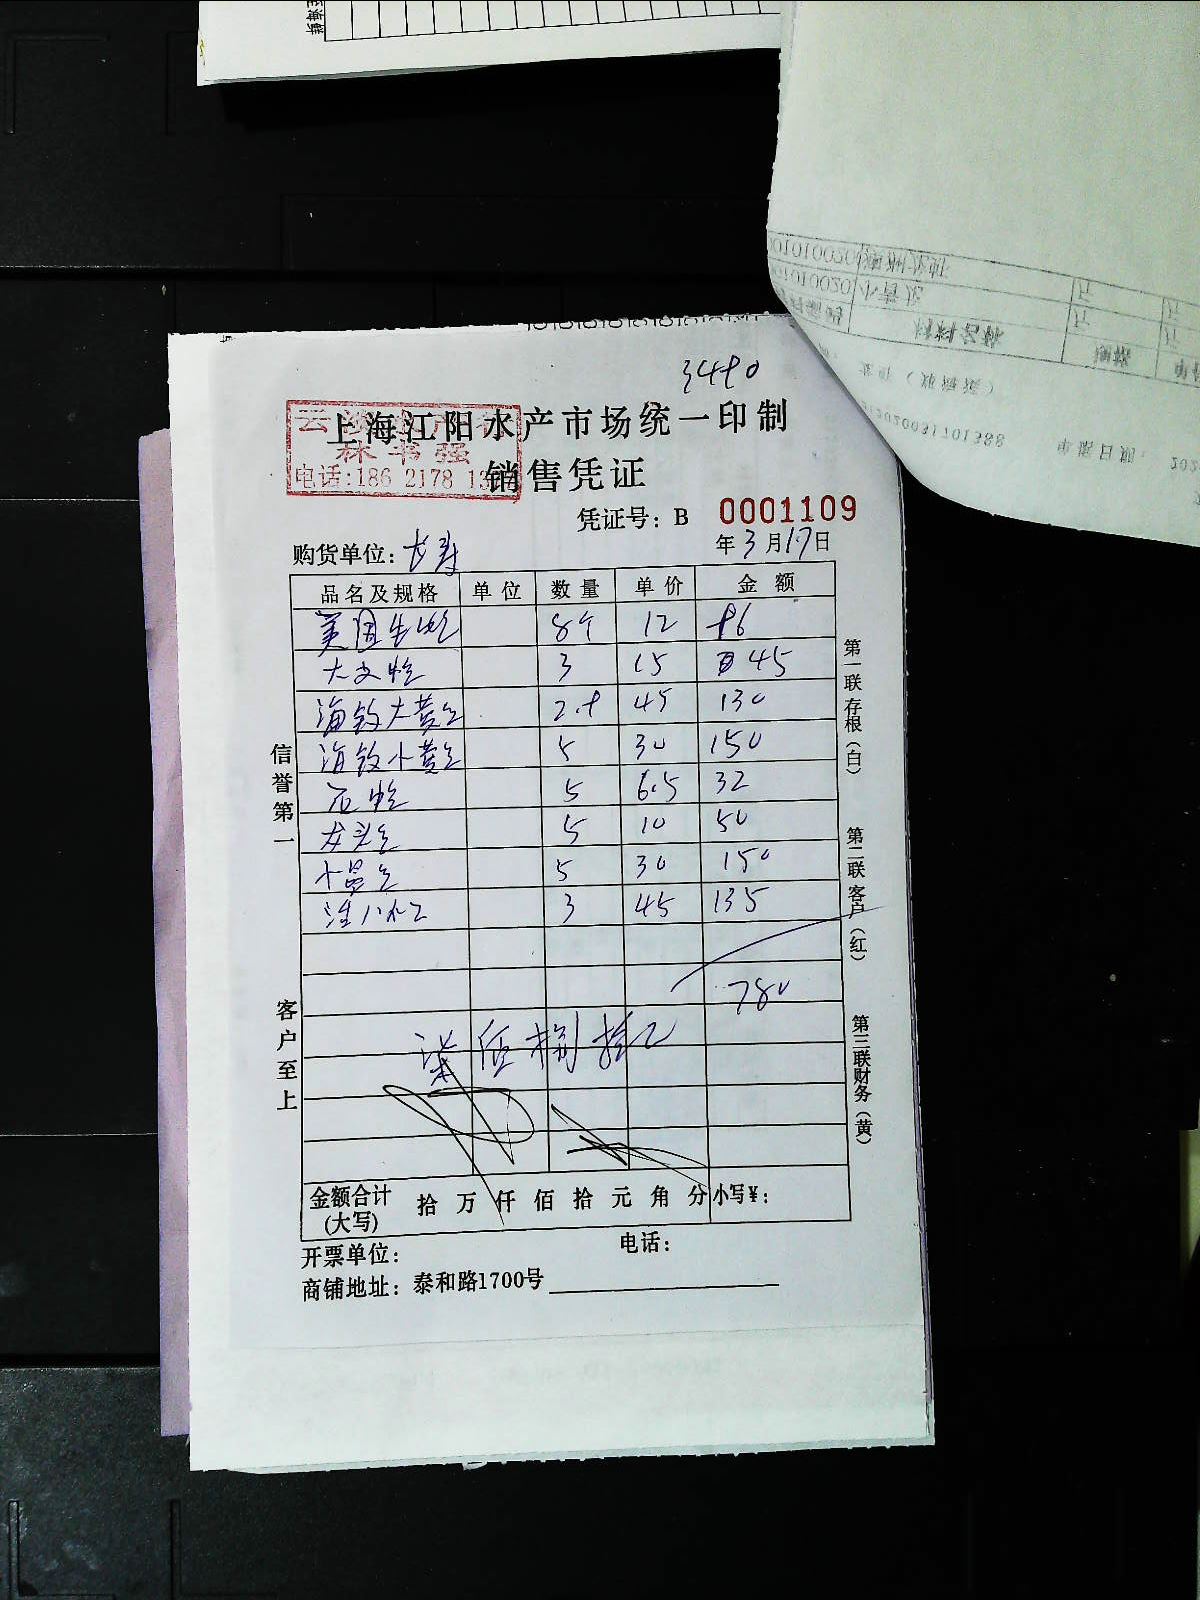 3490
上海江阳水产市场统一印制
林书强
电话:186 2178 13
销售凭证
凭证号: B 0001109
购货单位: 长寿
年3月17日
品名及规格 单位 数量 单价 金额
美国生蚝 8个 12 96
大文蛤 3 15 45
海钓大黄鱼 2.9 45 130
海钓小黄鱼 5 30 150
花蛤 5 6.5 32
龙头鱼 5 10 50
小昌鱼 5 30 150
3 45 135
780
柒佰捌拾元
金额合计(大写) 拾 万 仟 佰 拾 元 角 分 小写¥:
开票单位: 电话:
商铺地址: 泰和路1700号
信誉第一
客户至上
第一联存根(白)
第二联客户(红)
第三联财务(黄)